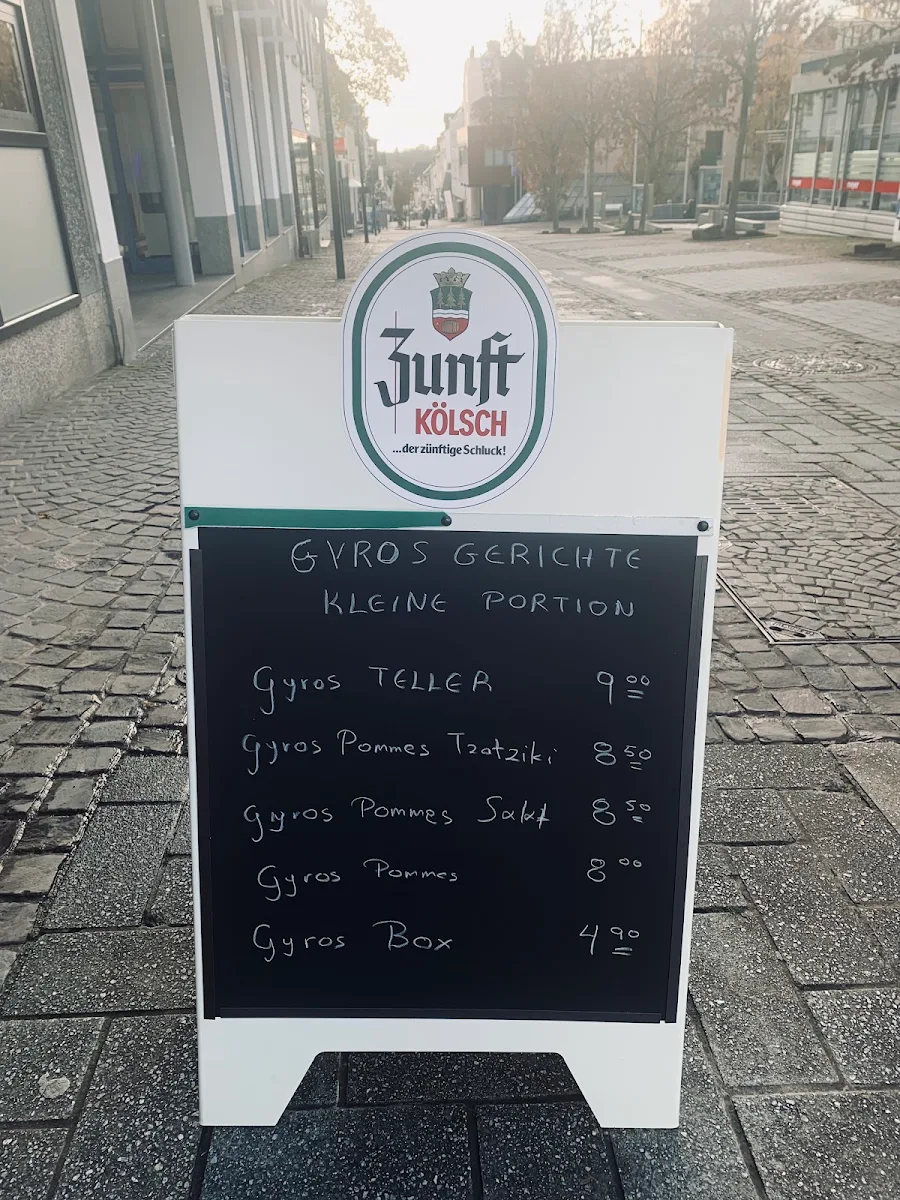 Zunft
KÖLSCH
...der zünftige Schluck!
GYROS GERICHTE
KLEINE PORTION
Gyros TELLER 9 00
Gyros Pommes Tzatziki 8 50
Gyros Pommes Salat 8 50
Gyros Pommes 8 00
Gyros Box 4 90